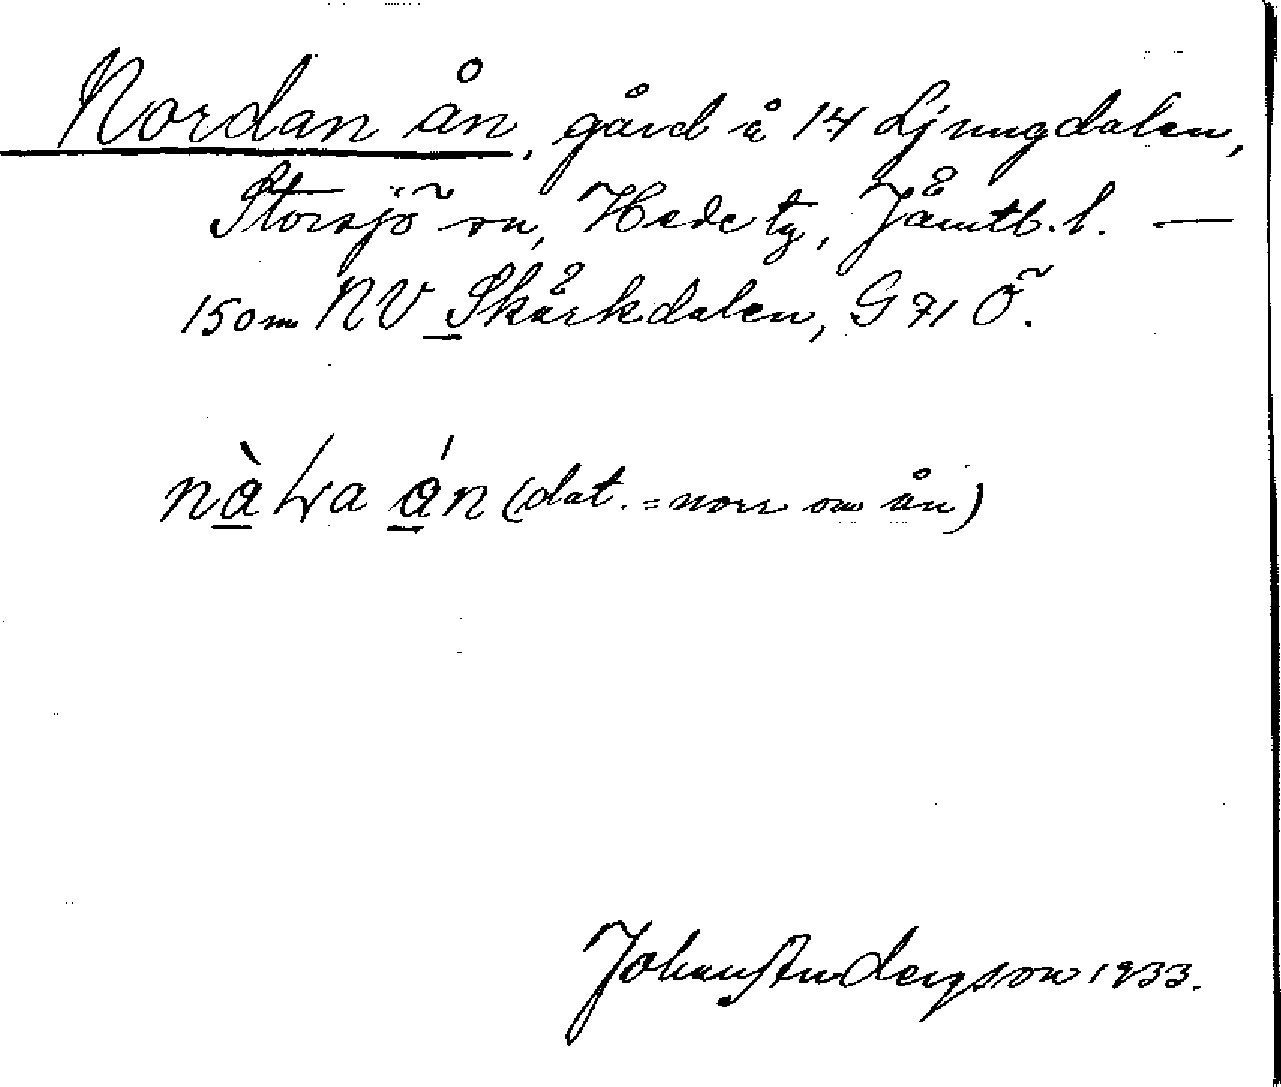 Nordan ån, gård å 14 Ljungdalen,
Storsjö sn, Hede tg, Jämtl. l. —
150 m NV Skärkdalen, G 71 Ö.
án (dat. = norr om ån)
Johan Anderson 1933.